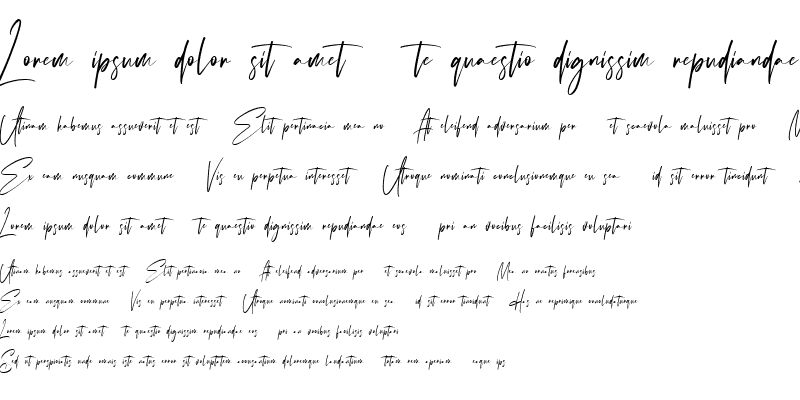 Lorem ipsum dolor sit amet te quaestio dignissim repudiandae
Utinam habemus assueverit et est Elit pertinacia mea no At eleifend adversarium per et scaevola maluisset pro M
Ex eam nusquam commune Vis eu perpetua interesset Utroque nominati conclusionemque eu sea id sit error tincidunt
Lorem ipsum dolor sit amet te quaestio dignissim repudiandae eos pri an vocibus facilisis voluptari
Utinam habemus assueverit et est Elit pertinacia mea no At eleifend adversarium per et scaevola maluisset pro Mea no ornatus forensibus
Ex eam nusquam commune Vis eu perpetua interesset Utroque nominati conclusionemque eu sea id sit error tincidunt Has ne reprimique concludaturque
Lorem ipsum dolor sit amet te quaestio dignissim repudiandae eos pri an vocibus facilisis voluptari
Sed ut perspiciatis unde omnis iste natus error sit voluptatem accusantium doloremque laudantium totam rem aperiam eaque ips